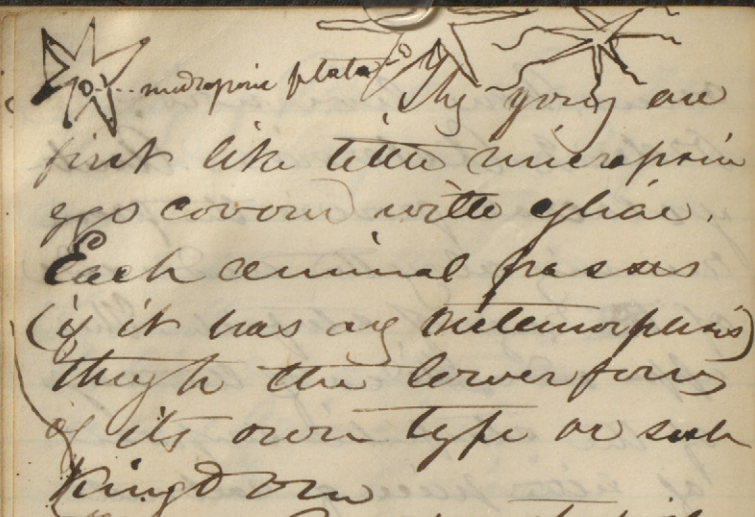 madreporic plate
The young are
first like little microscopic
eggs covered with ciliae.
Each animal passes
(if it has any metamorphosis)
though the lower forms
of its own type or sub
Kingdom